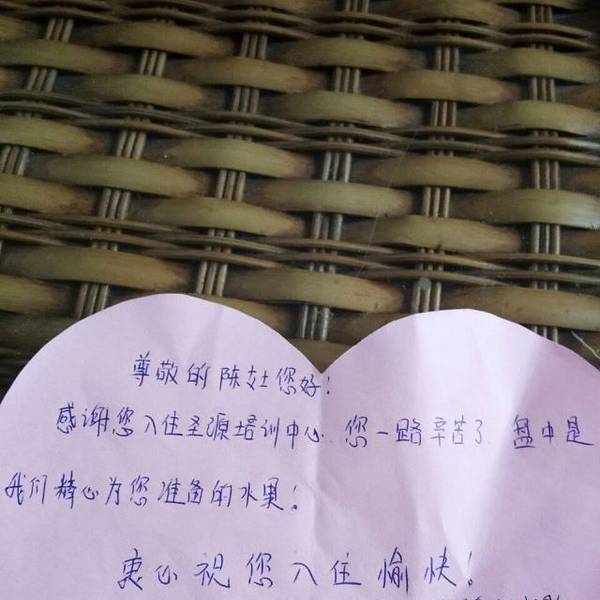 尊敬的陈女士您好!
感谢您入住圣源培训中心,您一路辛苦了,盘中是
我们精心为您准备的水果!
衷心祝您入住愉快!